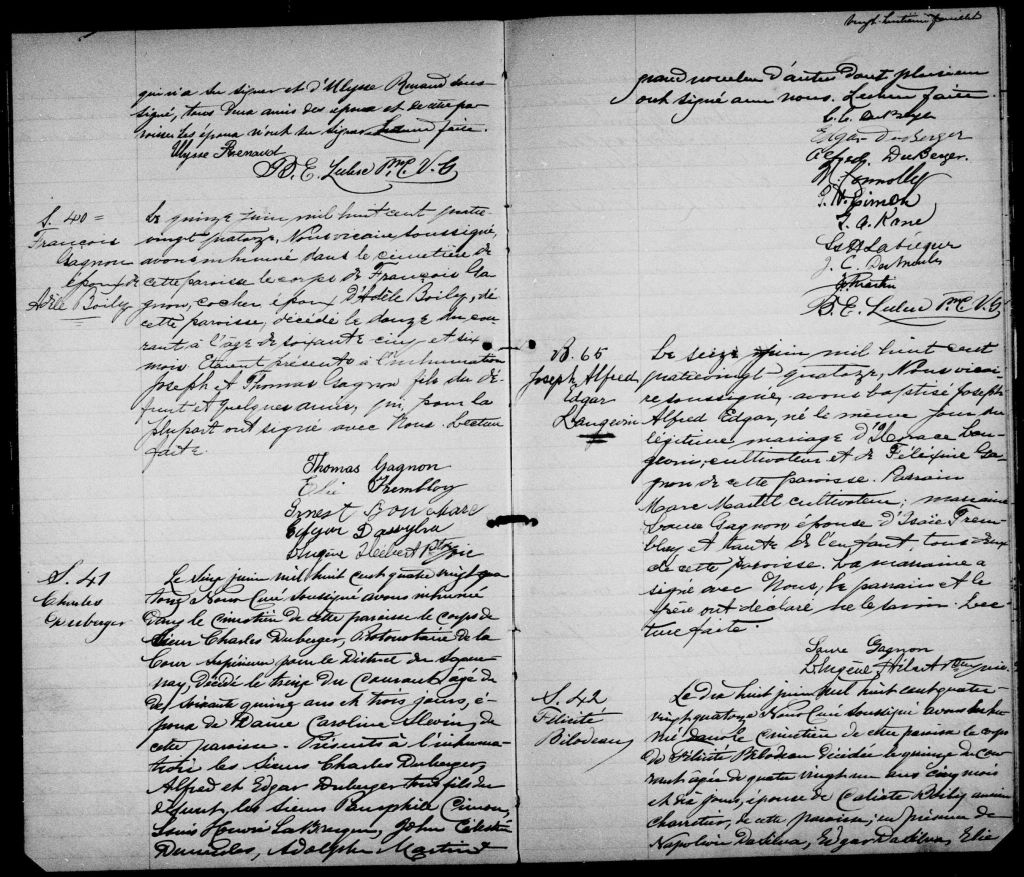 qui n'a su signer et d'Ulysse Renaud sous
signé, tous deux amis des époux et de cette pa-
roisse les époux n'ont su signer Lecture faite.
Ulysse Renaud
B. E. Leclerc Ptre C. V. G
S. 40 =
François
Gagnon
époux de
Adèle Boily
Le quinze juin mil huit cent quatre
vingt quatorze, Nous vicaire soussigné,
avons inhumé dans le cimetière de
cette paroisse le corps de François Ga
gnon, cocher époux d'Adèle Boily, de
cette paroisse, décédé le douze du cou-
rant à l'âge de soixante cinq et six
mois Etaient présents à l'inhumation
Joseph et Thomas Gagnon fils du dé-
funt et quelques amis, qui, pour la
plupart ont signé avec Nous. Lecture
faite.
Thomas Gagnon
Elie Tremblay
Ernest Bouchard
Edgar Dasylva
D. Eugène Hébert Ptre Vic
S. 41
Charles
Duberger
Le Seize juin mil huit cent quatre vingt qua
torze Nous Curé soussigné avons inhumé
dans le cimetière de cette paroisse le corps de
Sieur Charles Duberger, Protonotaire de la
Cour Supérieure pour le District de Sague-
nay, décédé le treize du Courant âgé de
de Soixante quinze ans et trois jours, é-
poux de Dame Caroline Slevin, de
cette paroisse. Présents à l'inhuma-
tion les Sieurs Charles Duberger,
Alfred et Edgar Duberger tous fils du
défunt, les Sieurs Panophile Cimon,
Louis Henri LaBrecque, John Célestin
Desmeules, Adolphe Martin et
Vingt-huitième feuillet
grand nombre d'autres dont plusieurs
ont signé avec nous. Lecture faite.
C. C. DuBerger
Edgar DuBerger
Alfred. DuBerger.
Connolly
Simon
G. A. Kane
J. C. DesMeules
Martin
B. E. Leclerc Ptre C. V. G
B. 65
Joseph Alfred
Edgar
Langevin
Le seize juin mil huit cent
quatrevingt quatorze, Nous vicai
re soussigné, avons baptisé Joseph
Alfred Edgar, né le même jour du
légitime mariage d'Horace Lan-
gevin, cultivateur et de Félixine Ga-
gnon de cette paroisse. Parrain
Marc Martel cultivateur; marraine
Laure Gagnon épouse d'Isaïe Trem-
blay et tante de l'enfant, tous deux
de cette paroisse. La marraine a
signé avec Nous, le parrain et le
père ont déclaré ne le savoir. Lec-
ture faite.
Laure Gagnon
D. Eugène Hébert Ptre Vic.
S. 42
Félicité
Bilodeau
Le dix huit juin mil huit cent quatre
vingt quatorze Nous Curé soussigné avons inhu
mé dans le cimetière de cette paroisse le corps
de Félicité Bilodeau décédée le quinze du cou
rant âgée de quatre vingt un ans cinq mois
et dix jours, épouse de Caliste Boily ancien
charretier, de cette paroisse; en présence de
Napoléon Dasilva, Edgar Dasilva, Elie